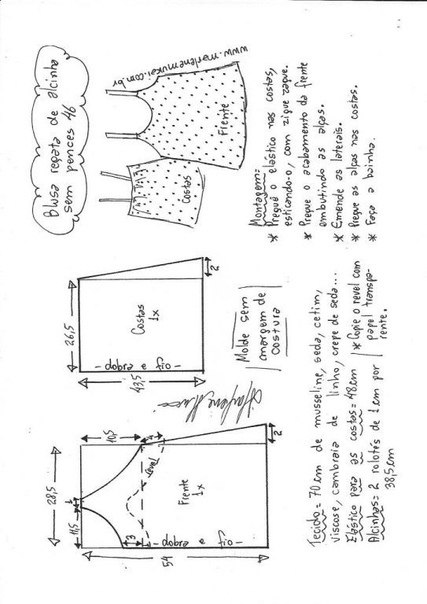 Blusa regata de alcinha
sem pences 46
www.marlenemukai.com.br
Costas
Frente
Montagem:
* Pregue o elástico nas costas,
esticando-o, com zigue zague.
* Pregue o acabamento da frente
embutindo as alças.
* Emende as laterais.
* Pregue as alças nas costas.
* Faça a bainha.
26,5
Costas
1x
-dobra e fio-
43,5
2
Molde sem
margem de
costura
28,5
11,5
10,5
revel
Frente
1x
3
-dobra e fio-
54
2
Tecido = 70cm de musseline, seda, cetim,
viscose, cambraia de linho, crepe de seda...
Elástico para as costas = 48cm
Alcinhas = 2 rolotês de 1cm por
38,5cm
* Copie o revel com
papel transpa-
rente.